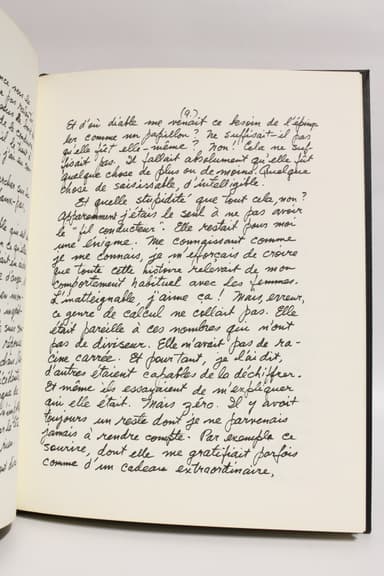 (9.)
Et d'où diable me venait ce besoin de l'épingler
ler comme un papillon? Ne suffisait-il pas
qu'elle fût elle-même? Non! Cela ne suf-
fisait pas. Il fallait absolument qu'elle fût
quelque chose de plus ou de moins. Quelque
chose de saisissable, d'intelligible.
Et quelle stupidité que tout cela, non?
Apparemment j'étais le seul à ne pas avoir
le "fil conducteur". Elle restait pour moi
une énigme. Me connaissant comme
je me connais, je m'efforçais de croire
que toute cette histoire relevait de mon
comportement habituel avec les femmes.
L'inatteignable, j'aime ça! Mais, erreur,
ce genre de calcul ne collait pas. Elle
était pareille à ces nombres qui n'ont
pas de diviseur. Elle n'avait pas de ra-
cine carrée. Et pourtant, je l'ai dit,
d'autres étaient capables de la déchiffrer.
Et même ils essayaient de m'expliquer
qui elle était. Mais zéro. Il y avait
toujours un reste dont je ne parvenais
jamais à rendre compte. Par exemple ce
sourire, dont elle me gratifiait parfois
comme d'un cadeau extraordinaire,